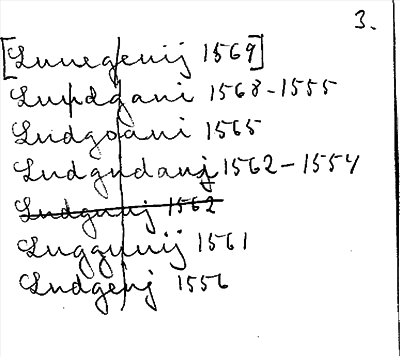 3.
[Lunegenij 1569]
Lundgani 1568-1555
Ludgoani 1565
Ludgudanj 1562-1554
Ludgunij 1562
Luggunij 1561
Ludgenj 1556